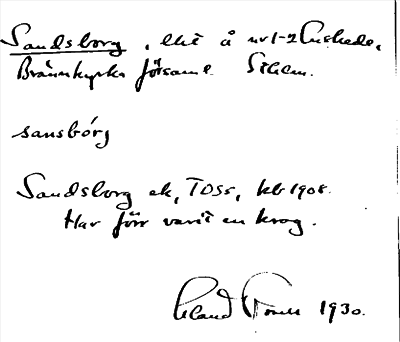 Sandsborg, lht å nr 1-2 Enskede,
Brännkyrka församl. Sthlm.
sansbórj
Sandsborg ek, TOSS, kb 1908.
Har förr varit en krog.
Erland 1930.